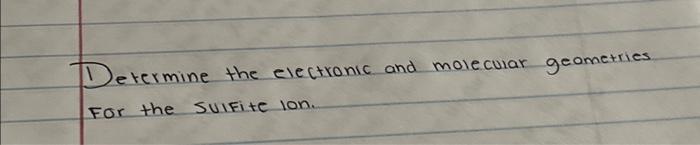 Determine the electronic and molecular geometries
For the Sulfite Ion.